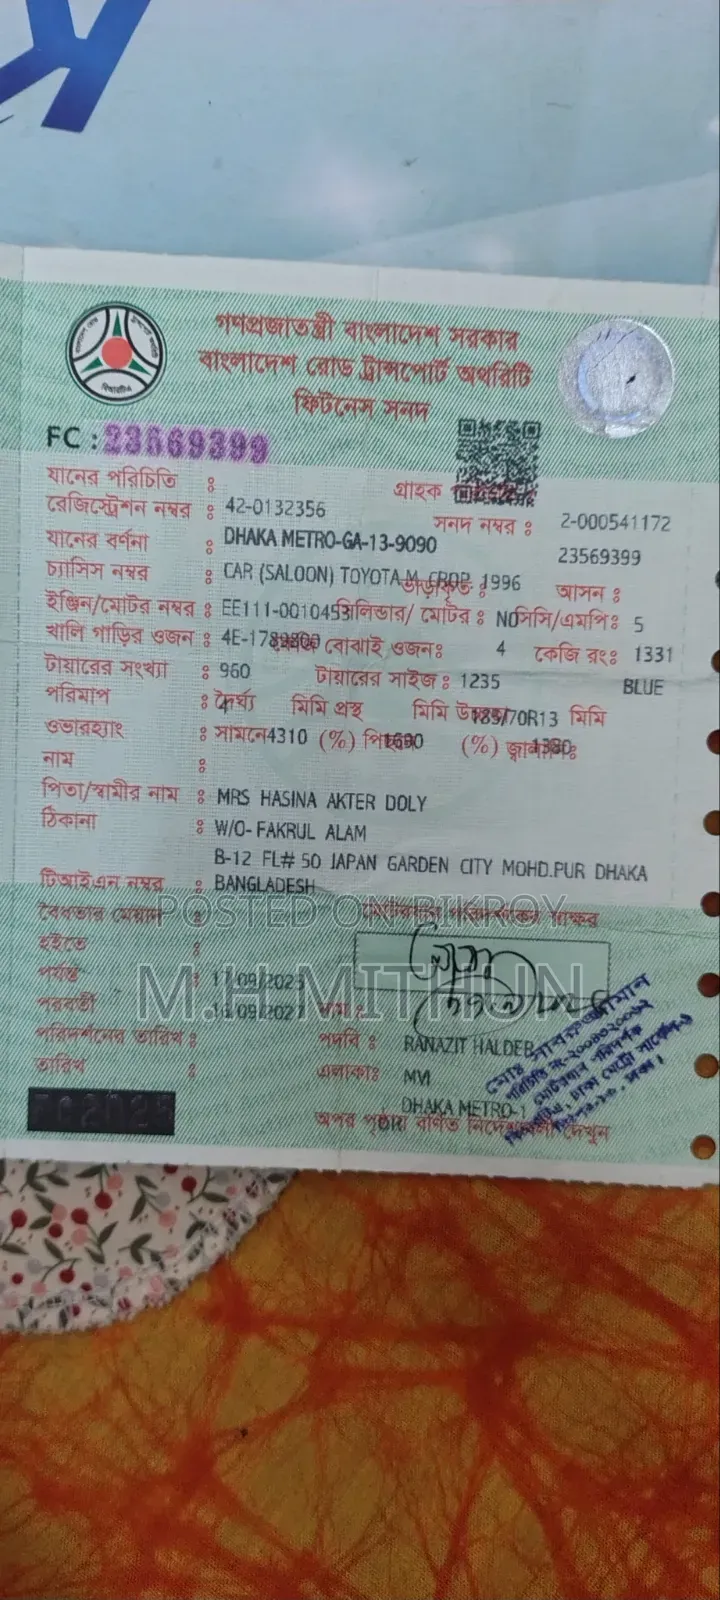 K
গণপ্রজাতন্ত্রী বাংলাদেশ সরকার
বাংলাদেশ রোড ট্রান্সপোর্ট অথরিটি
ফিটনেস সনদ
FC : 23569399
যানের পরিচিতি : গ্রাহক
রেজিস্ট্রেশন নম্বর : 42-0132356 সনদ নম্বর : 2-000541172
যানের বর্ণনা : DHAKA METRO-GA-13-9090 23569399
চ্যাসিস নম্বর : CAR (SALOON) TOYOTA M. CROP, 1996 আসন :
ইঞ্জিন/মোটর নম্বর : EE111-0010453 সিলিন্ডার/ মোটর : NO সিসি/এমপি: 5
খালি গাড়ির ওজন : বোঝাই ওজন: 4 কেজি রং: 1331
টায়ারের সংখ্যা : 960 টায়ারের সাইজ : 1235 BLUE
পরিমাপ : দৈর্ঘ্য মিমি প্রস্থ মিমি 185/70R13 মিমি
ওভারহ্যাং : সামনে 4310 (%) 1690 (%) 1380
নাম :
পিতা/স্বামীর নাম : MRS HASINA AKTER DOLY
ঠিকানা : W/O- FAKRUL ALAM
B-12 FL# 50 JAPAN GARDEN CITY MOHD.PUR DHAKA
টিআইএন নম্বর : BANGLADESH
বৈধতার মেয়াদ :
POSTED ON BIKROY
হইতে :
পর্যন্ত : 17/09/2025
M.H MITHUN
পরবর্তী 16/09/2027 নাম :
পরিদর্শনের তারিখ : পদবি : RANAZIT HALDER
তারিখ : এলাকাঃ MVI
DHAKA METRO-1
অপর পৃষ্ঠায় বর্ণিত নির্দেশাবলী দেখুন